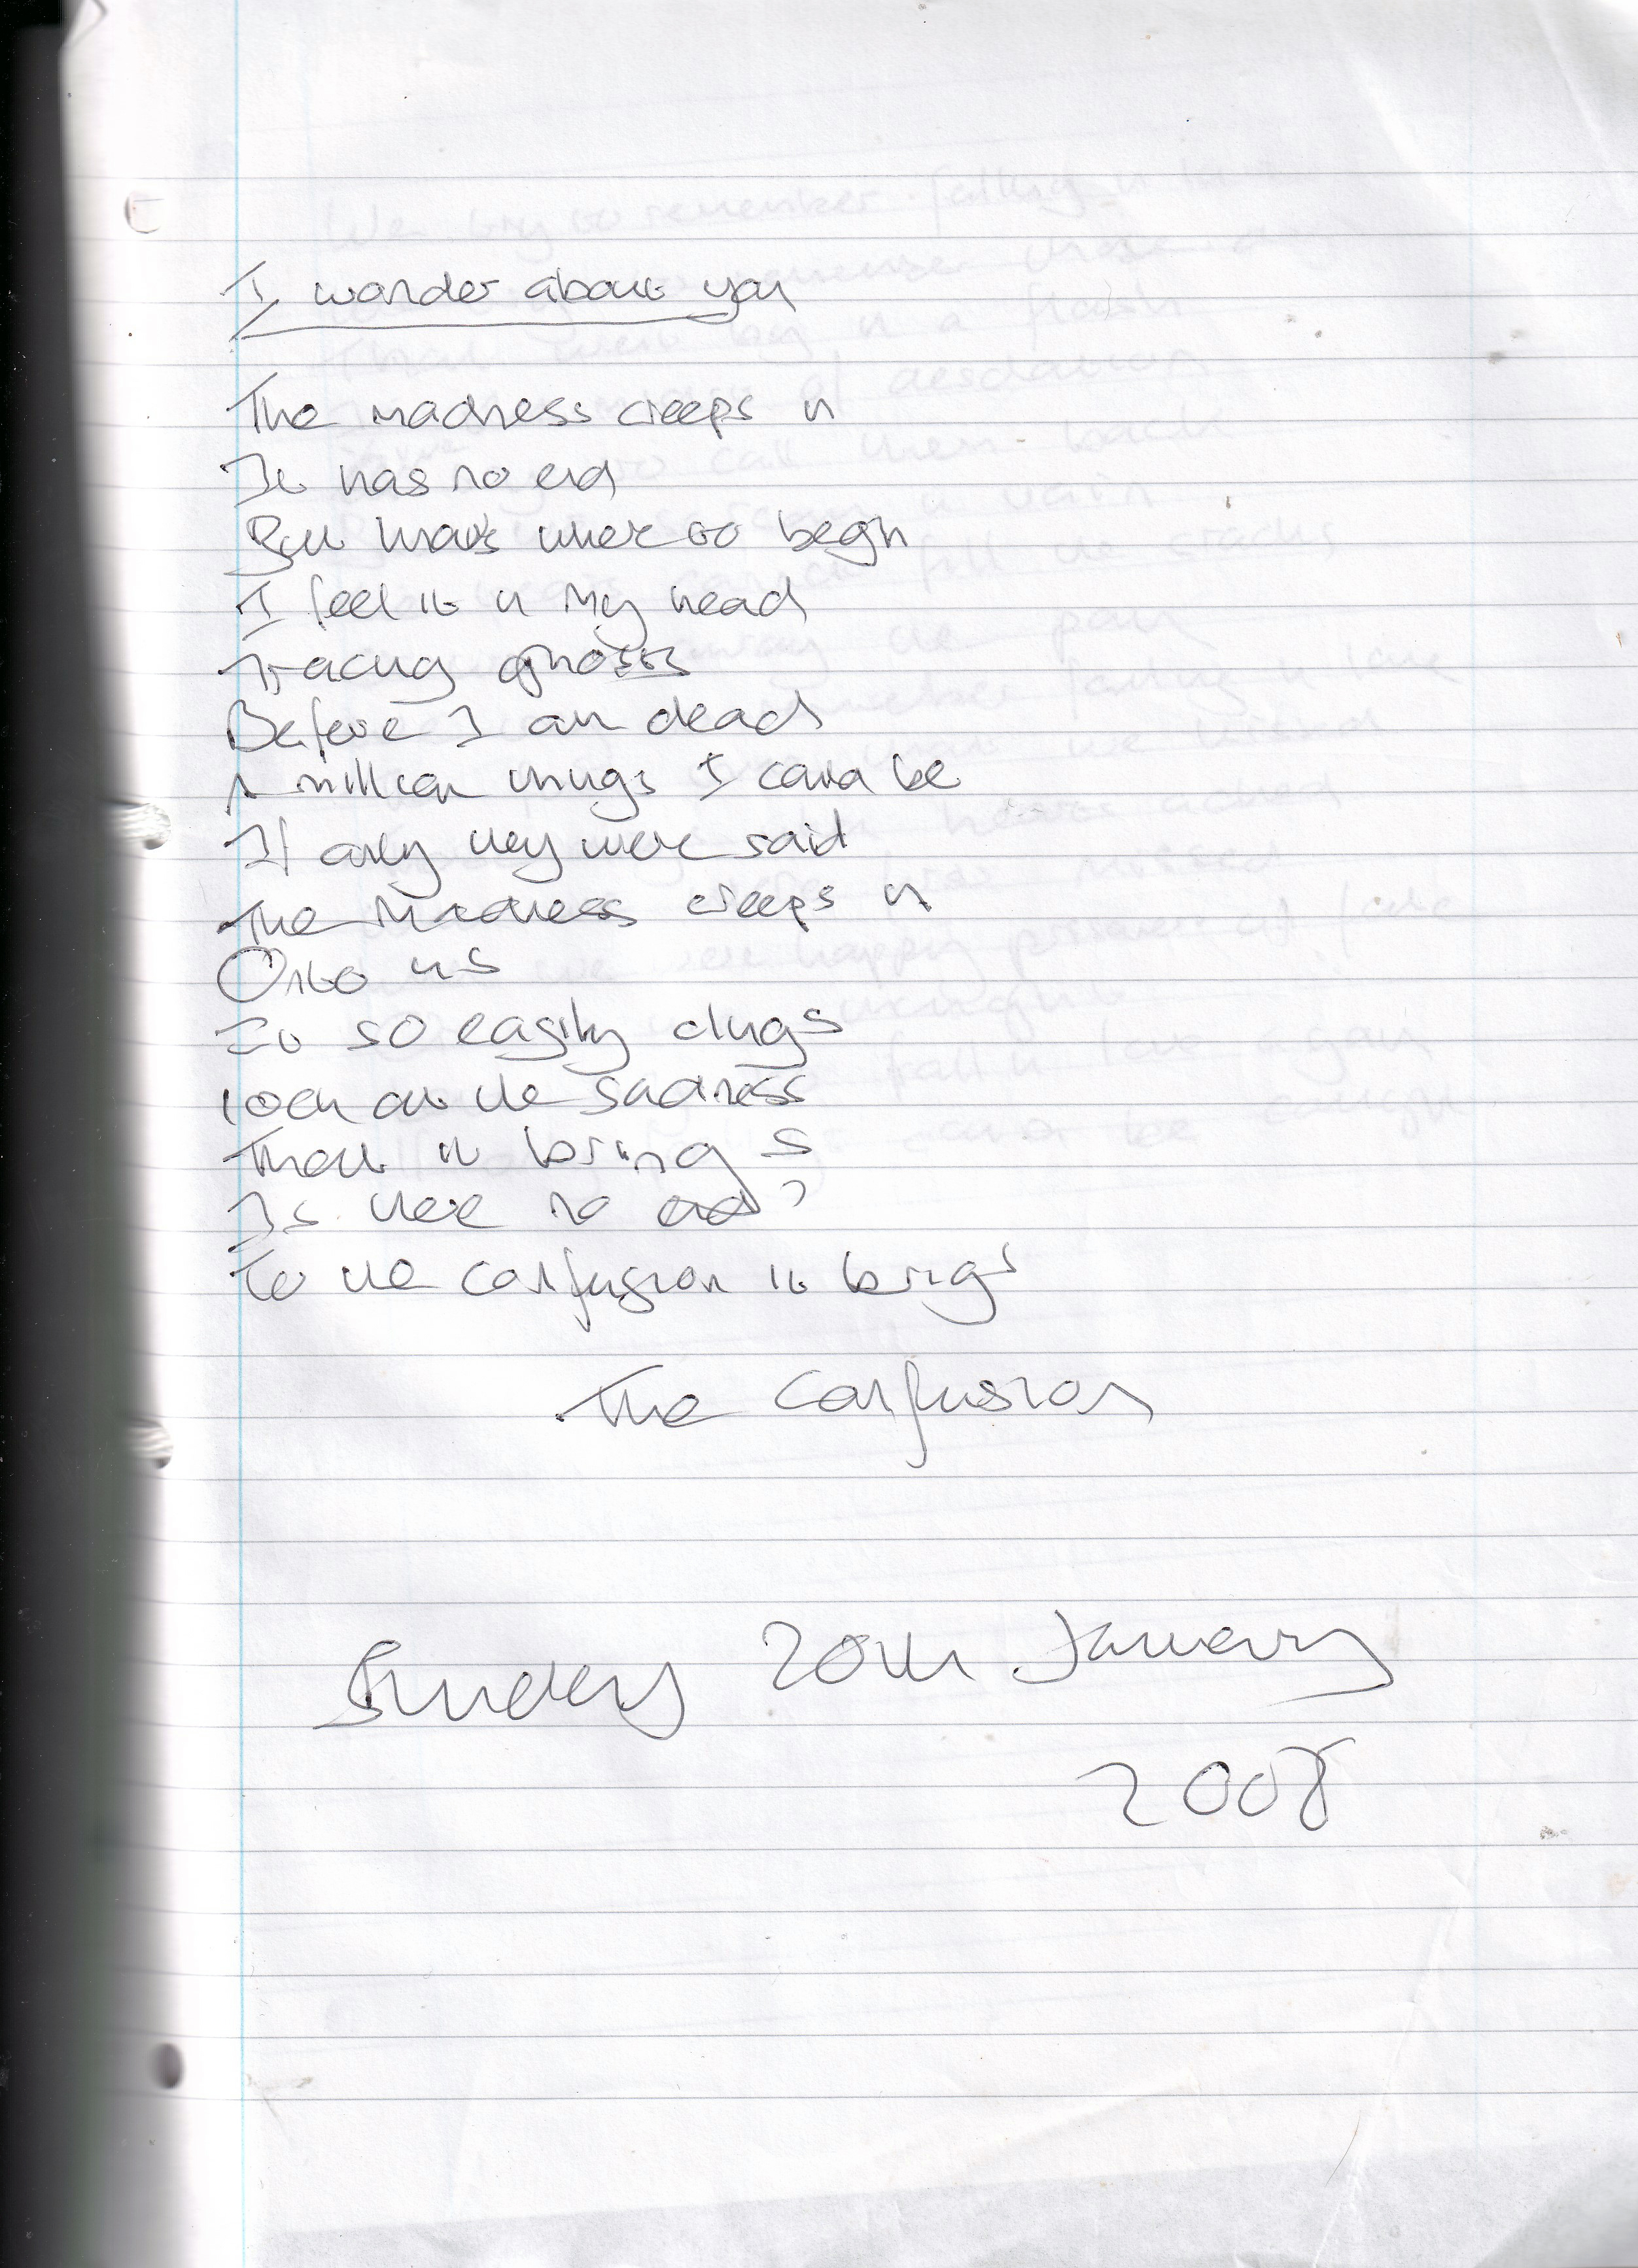 I wonder about you
The madness creeps in
It has no end
But that's where to begin
I feel it in my head
Tracing ghosts
Before I am dead
A million things I could be
If only they were said
The madness creeps in
Onto us
It so easily clings
Look at the sadness
That it brings
Is there no end?
To the confusion it brings
The Confusion
Sunday 20th January
2008